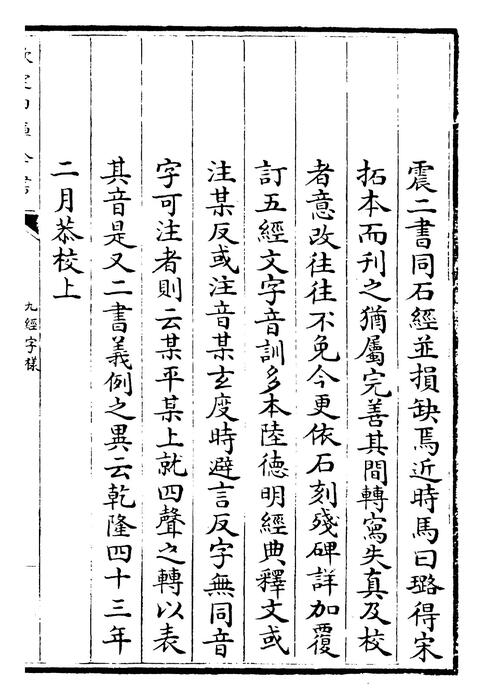 震二書同石經並損缺焉近時馬曰璐得宋
拓本而刊之猶屬完善其間轉寫失真及校
者意改往往不免今更依石刻殘碑詳加覆
訂五經文字音訓多本陸德明經典釋文或
注某反或注音某玄度時避言反字無同音
字可注者則云某平某上就四聲之轉以表
其音是又二書義例之異云乾隆四十三年
二月恭校上
九經字樣